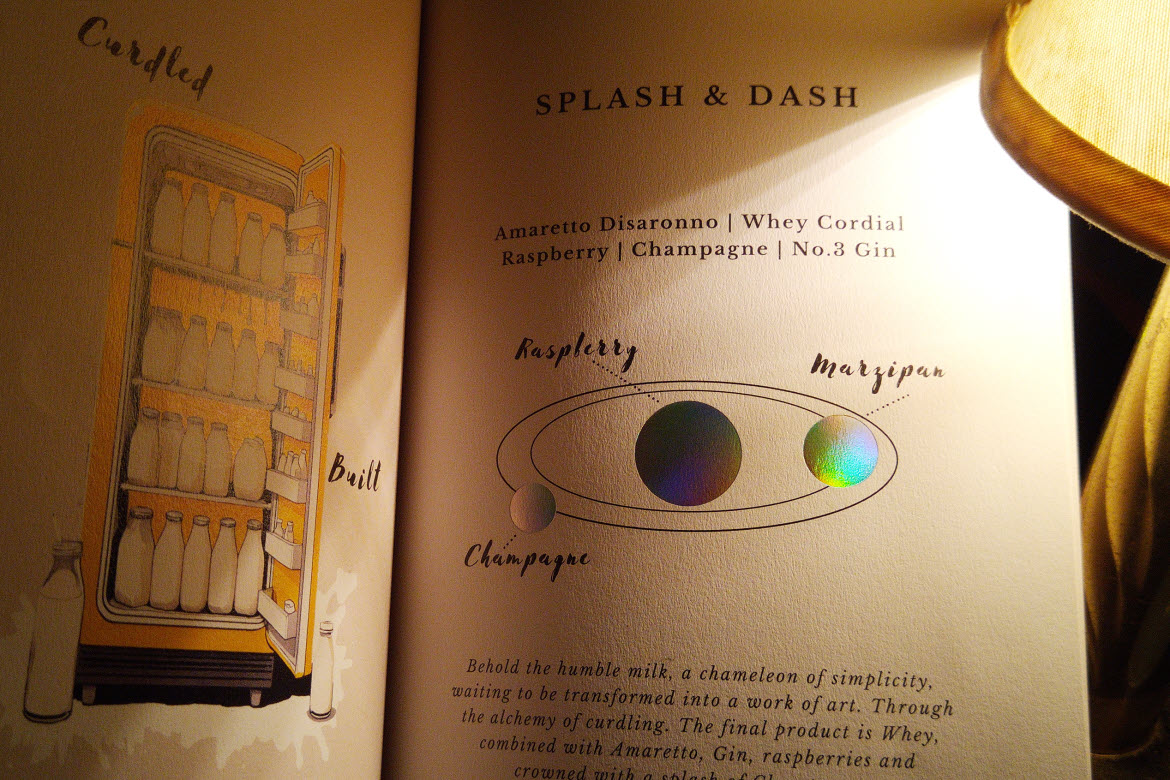 Curdled
Built
SPLASH & DASH
Amaretto Disaronno | Whey Cordial
Raspberry | Champagne | No.3 Gin
Raspberry
Marzipan
Champagne
Behold the humble milk, a chameleon of simplicity,
waiting to be transformed into a work of art. Through
the alchemy of curdling. The final product is Whey,
combined with Amaretto, Gin, raspberries and
crowned with a splash of